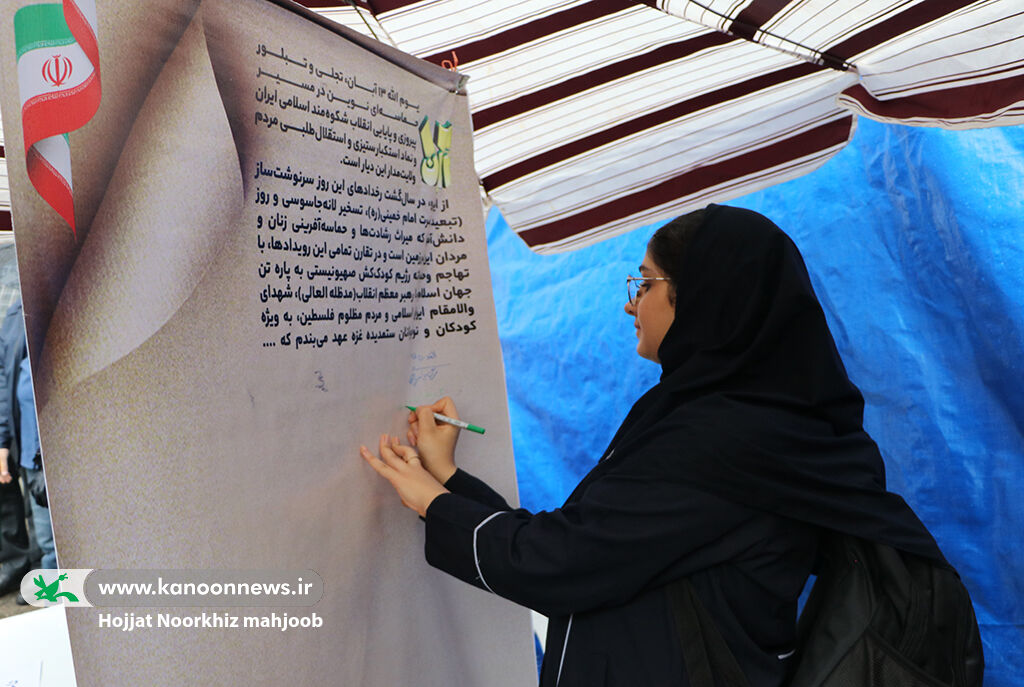 یوم الله ۱۳ آبان، تجلی و تبلور
حماسه‌ای نوین در مسیر
پیروزی و پایایی انقلاب شکوه‌مند اسلامی ایران
و نماد استکبارستیزی و استقلال‌طلبی مردم
ولایت‌مدار این دیار است.
۱۳
آبان
از این‌رو، در سال‌گشت رخدادهای این روز سرنوشت‌ساز
(تبعید حضرت امام خمینی(ره)، تسخیر لانه‌جاسوسی و روز
دانش‌آموز) که میراث رشادت‌ها و حماسه‌آفرینی زنان و
مردان ایران‌زمین است و در تقارن تمامی این رویدادها، با
تهاجم وحشیانه رژیم کودک‌کش صهیونیستی به پاره تن
جهان اسلام، با رهبر معظم انقلاب(مدظله العالی)، شهدای
والامقام ایران اسلامی و مردم مظلوم فلسطین، به ویژه
کودکان و نوجوانان ستمدیده غزه عهد می‌بندم که ....
www.kanoonnews.ir
Hojjat Noorkhiz mahjoob